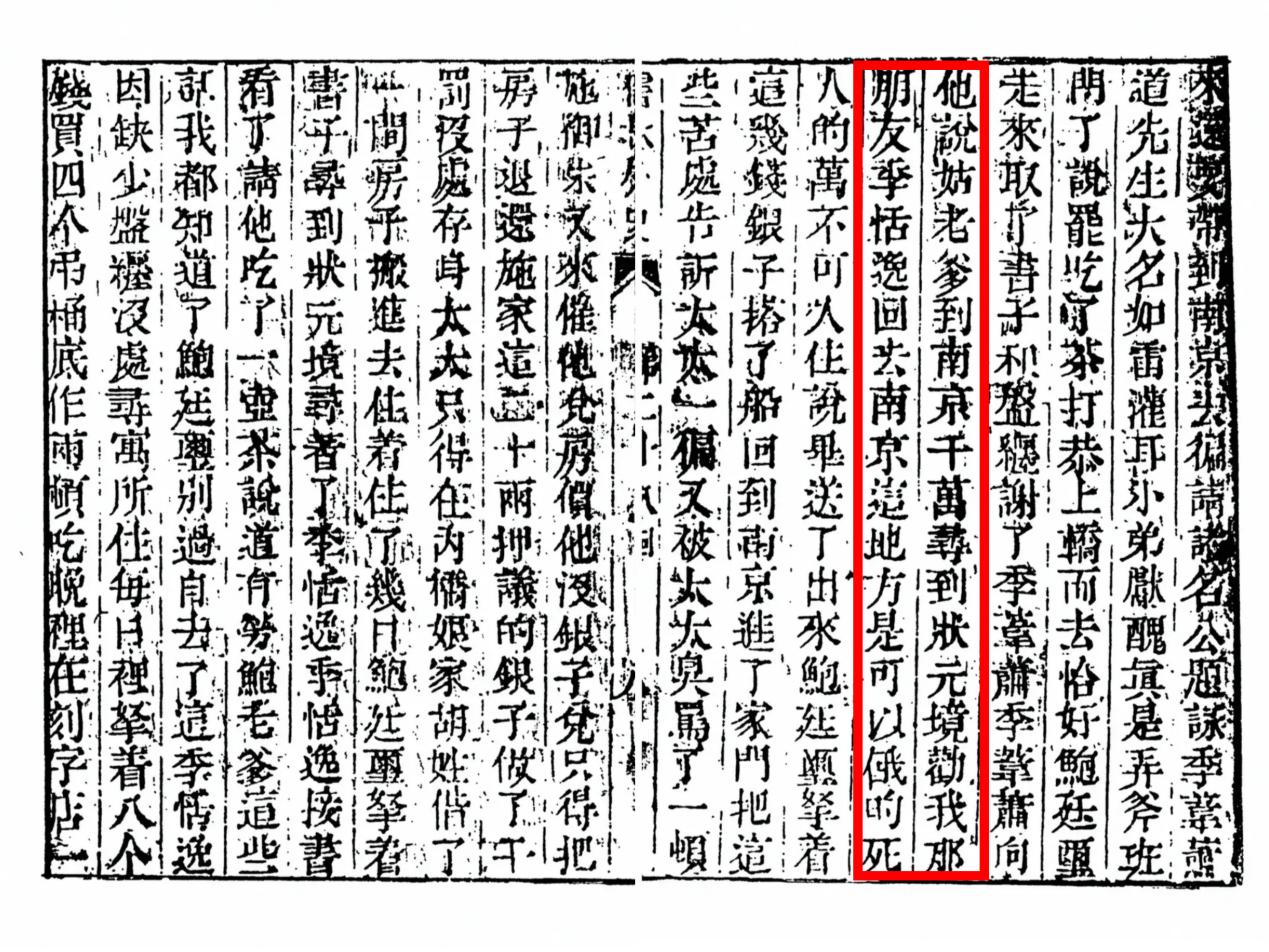 來還要帶到南京去徧請諸名公題詠季葦蕭
道先生大名如雷灌耳小弟獻醜眞是弄斧班
門了說罷吃了茶打恭上轎而去恰好鮑廷璽
走來取了書子和盤纏謝了季葦蕭季葦蕭向
他說姑老爹到南京千萬尋到狀元境勸我那
朋友季恬逸回去南京這地方是可以餓的死
人的萬不可久住說畢送了出來鮑廷璽拏着
這幾錢銀子搭了船回到南京進了家門把這
些苦處告訴太太一徧又被太太臭罵了一頓
儒林外史 第二十八回 八
施御史又來催他兌房價他沒銀子兌只得把
房子退還施家這二十兩押議的銀子做了干
罰沒處存身太太只得在內橋娘家胡姓借了
一間房子搬進去住着住了幾日鮑廷璽拏着
書子尋到狀元境尋着了季恬逸季恬逸接書
看了請他吃了一壺茶說道有勞鮑老爹這些
話我都知道了鮑廷璽別過自去了這季恬逸
因缺少盤纏沒處尋寓所住每日裡拏着八个
錢買四个吊桶底作兩頓吃晚裡在刻字店一